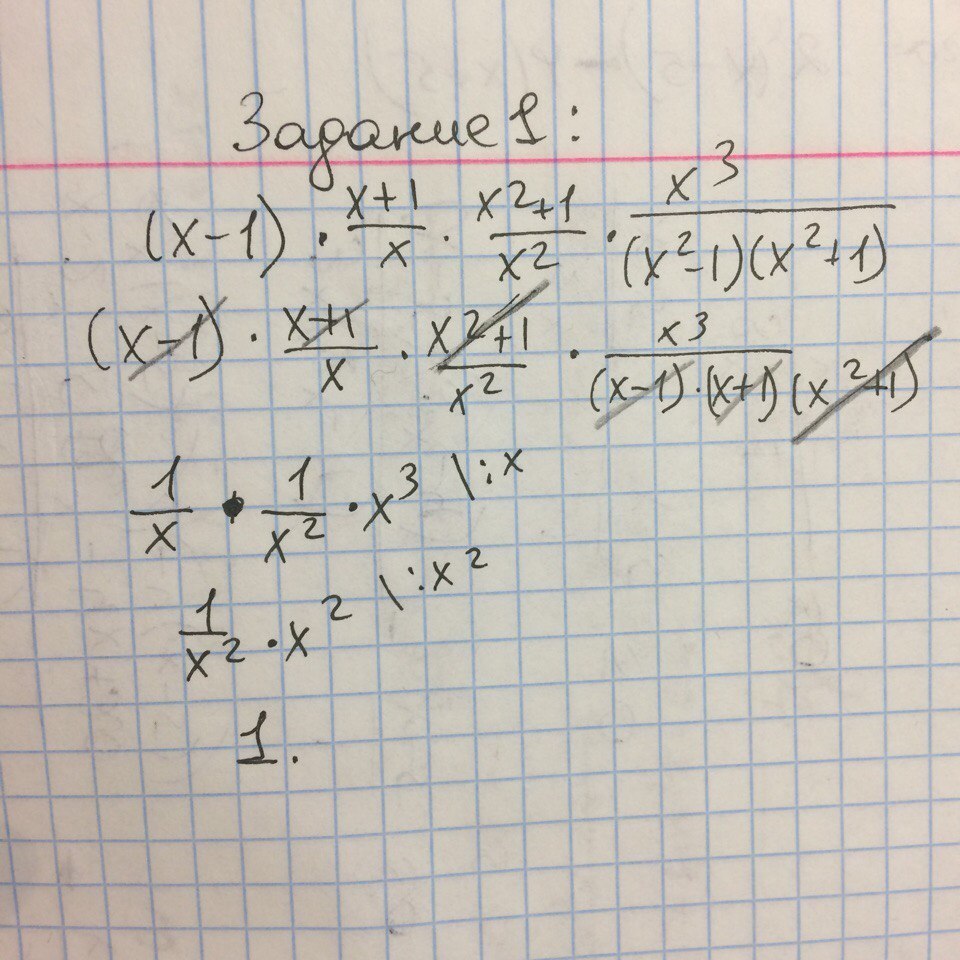 Задание 1:
(x-1) · \frac{x+1}{x} · \frac{x^2+1}{x^2} · \frac{x^3}{(x^2-1)(x^2+1)}
(x-1) · \frac{x+1}{x} · \frac{x^2+1}{x^2} · \frac{x^3}{(x-1)·(x+1)(x^2+1)}
\frac{1}{x} · \frac{1}{x^2} · x^3 \ :x
\frac{1}{x^2} · x^2 \ :x^2
1.